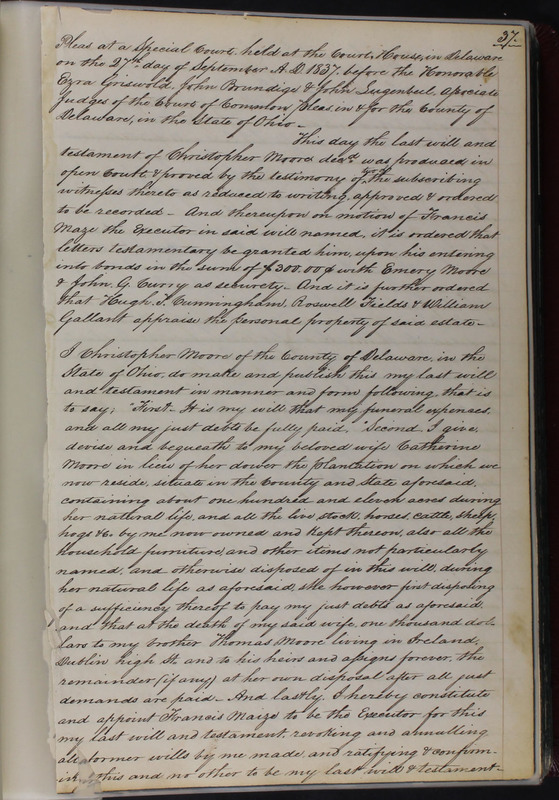 37.
Pleas at a Special Court, held at the Court House, in Delaware
on the 27th day of September A.D. 1837. before the Honorable
Ezra Griswold. John Brundige & John Lugenbeel. Associate
Judges of the Court of Common Pleas, in & for the County of
Delaware, in the State of Ohio –
This day the last will and
testament of Christopher Moore decd. was produced in
open Court & proved by the testimony of the subscribing
witnesses thereto as reduced to writing, approved & ordered
to be recorded – And thereupon on motion of Francis
Maze the Executor in said will named, it is ordered that
letters testamentary be granted him, upon his entering
into bonds in the sum of $300.00 with Emery Moore
& John. G. Curry as securety – And it is further ordered
that Hugh. S. Cunningham, Roswell Fields & William
Gallant appraise the personal property of said estate –
I Christopher Moore of the County of Delaware. in the
State of Ohio, do make and publish this my last will
and testament in manner and form following, that is
to say; First – It is my will that my funeral expenses,
and all my just debts be fully paid, Second. I give,
devise and bequeath to my beloved wife Catherine
Moore in lieu of her dower the plantation on which we
now reside, situate in the County and State aforesaid,
containing about one hundred and eleven acres during
her natural life, and all the live stock, horses, cattle, sheep,
hogs &c. by me now owned and kept thereon, also all the
household furniture, and other items not particularly
named, and otherwise disposed of in this will, during
her natural life as aforesaid, she however first disposing
of a sufficiency thereof to pay my just debts as aforesaid,
and that at the death of my said wife, one thousand dol-
lars to my brother Thomas Moore living in Ireland,
Dublin high St. and to his heirs and assigns forever, the
remainder (if any) at her own disposal after all just
demands are paid – And lastly, I hereby constitute
and appoint Francis Maize to be the Executor for this
my last will and testament, revoking and annulling
all former wills by me made, and ratifying & confirm-
ing this and no other to be my last will & testament –